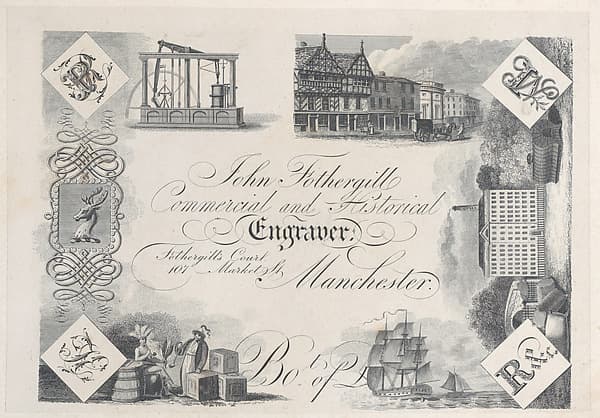 John Fothergill
Commercial and Historical
Engraver.
Fothergill's Court
107 Market St.
Manchester.
Bo.t of